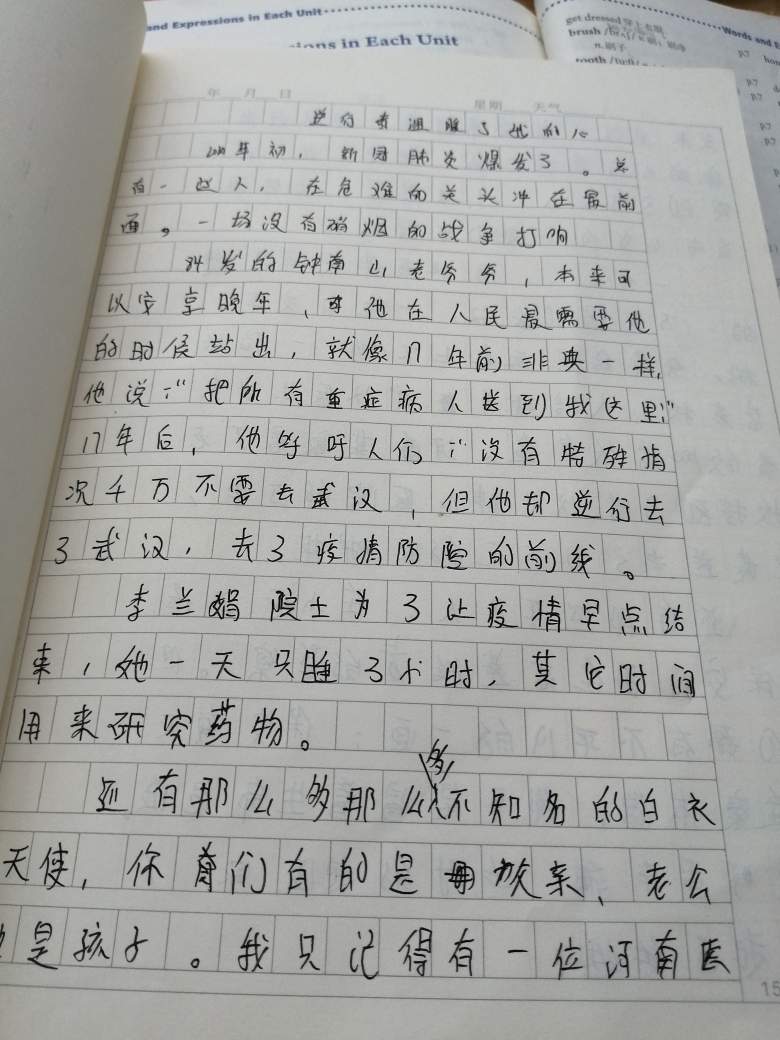 and Expressions in Each Unit
ions in Each Unit
get dressed 穿上衣服
brush
n.刷子
tooth
Words and E
p.7
p.7
p.7
p.7
p.7
年 月 日 星期 天气
逆行者温暖了我的心
年初，新冠肺炎爆发了。总
有一些人，在危难的关头冲在最前
面。一场没有硝烟的战争打响
84岁的钟南山老爷爷，本来可
以安享晚年，可他在人民最需要他
的时候站出，就像17年前非典一样，
他说：“把所有重症病人送到我这里”
17年后，他呼吁人们：“没有特殊情
况千万不要去武汉，但他却逆行去
了武汉，去了疫情防控的前线。
李兰娟院士为了让疫情早点结
束，她一天只睡3小时，其它时间
用来研究药物。
还有那么多那么多不知名的白衣
天使，你们有的是母亲、老公
是孩子。我只记得有一位河南医
15